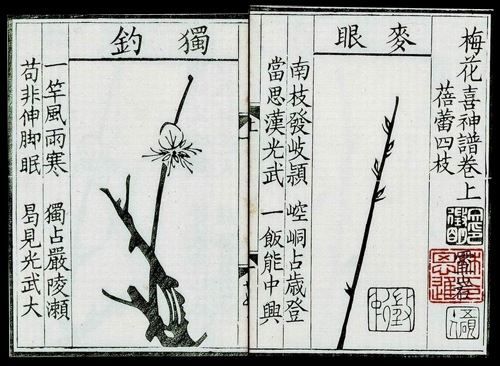 梅花喜神譜卷上
蓓蕾四枝
麥眼
南枝發岐穎 崆峒占歲登
當思漢光武 一飯能中興
獨釣
一竿風雨寒 獨占嚴陵瀨
苟非伸脚眠 曷見光武大